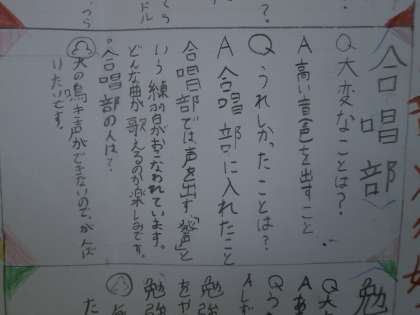 〈合唱部〉
Q大変なことは?
A高い音(色)を出すこと
Qうれしかったことは?
A合唱部に入れたこと
合唱部では、声を出す、「発声」と
いう練習がおこなわれています。
どんな曲が歌えるのか楽しみです。
合唱部の人は?
犬の鳴キ声ができないので、がんば
りたいです。
勉
Q大
Aあ
Qう
Aし
勉強
をや
勉強
た